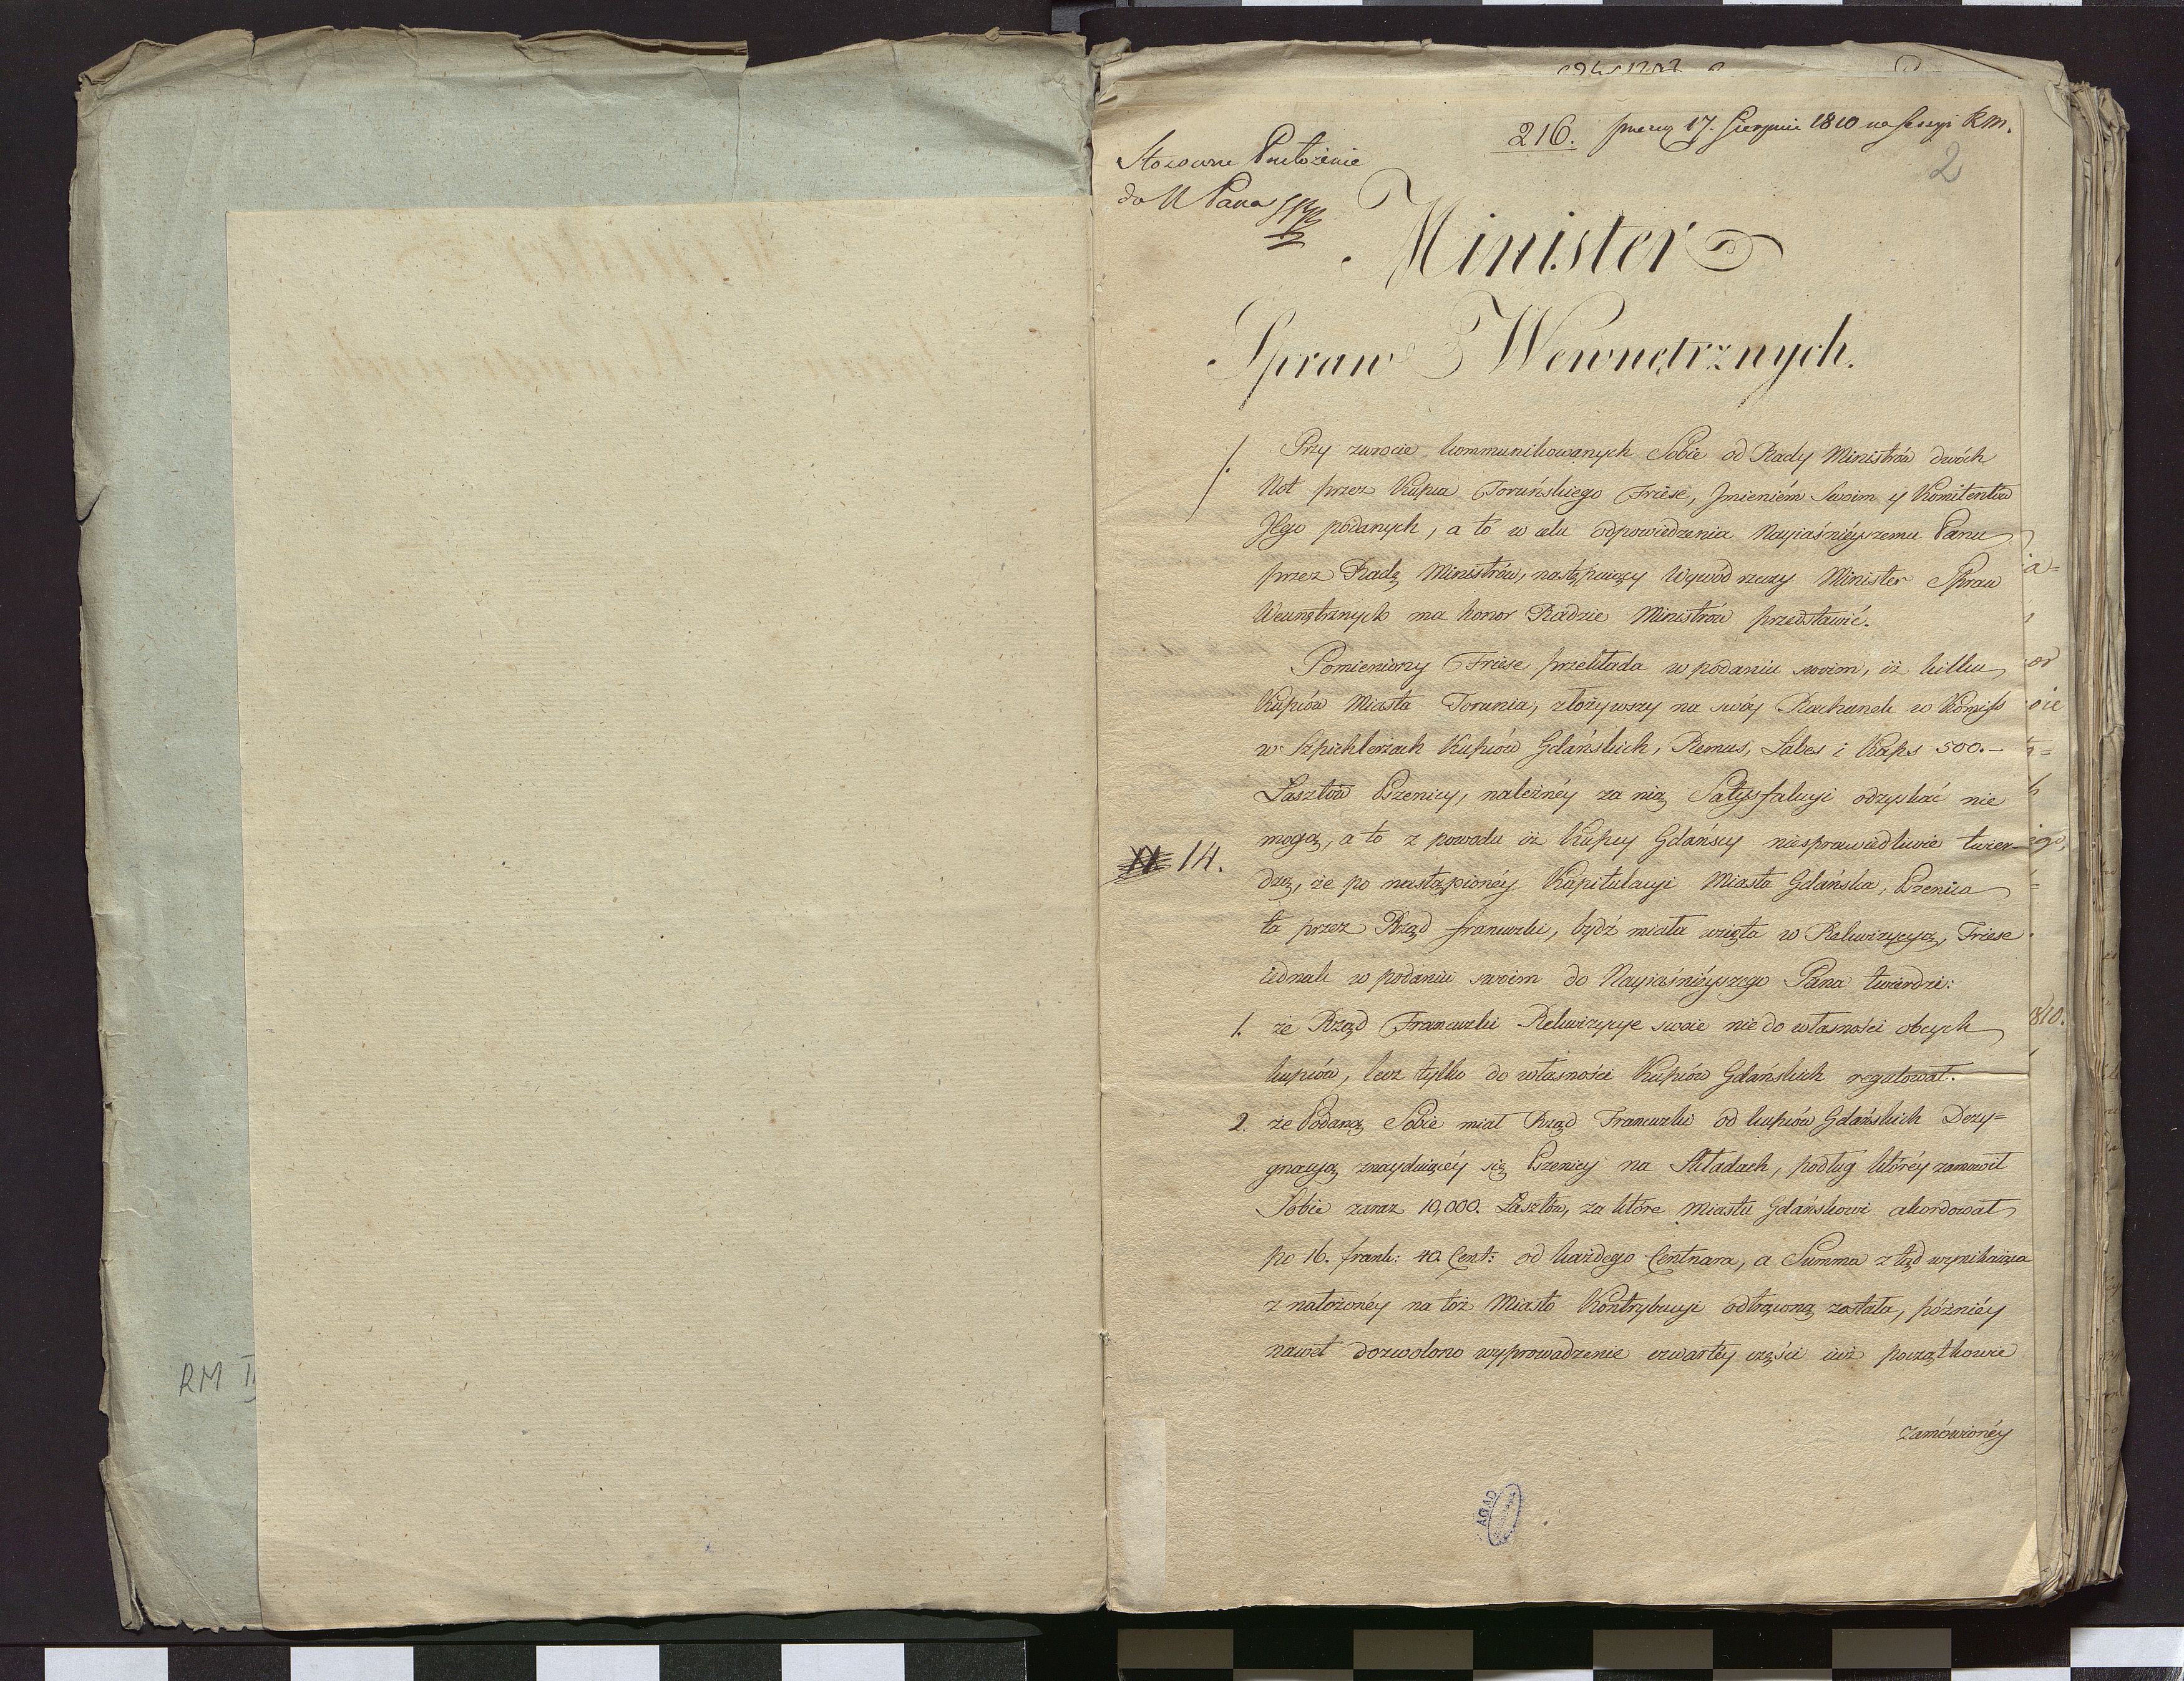 216. 17. Sierpnia 1810 na Sessyi RM.
2
Stosowne Przełożenie
do N Pana
Minister
Spraw Wewnętrznych.
Przy zwrocie kommunikowanych Sobie od Rady Ministrów dwóch
Not przez Kupca Toruńskiego Friese, Jmieniém Swoim y Komitentów
Jego podanych, a to w celu odpowiedzenia Nayiaśniéyszemu Panu
przez Radę Ministrów, następuiący Wywód rzeczy Minister Spraw
Wewnętrznych ma honor Radzie Ministrów przedstawić.
Pomieniony Friese przekłada w podaniu swoim, iż kilku
Kupców Miasta Torunia, złożywszy na swóy Rachunek w Komiss
w Szpichlerzach Kupców Gdańskich, Remus, Labes i Kaps 500.–
Łasztów Pszenicy, należnéy za nią Satysfakcyi odzyskać nie
mogą, a to z powodu iż Kupcy Gdańscy niesprawiedliwie twier-
14.
dzą, że po nastąpionéy Kapitulacyi Miasta Gdańska, Pszenica
ta przez Rząd francuzki, bydź miała wzięta w Rekwizycyą, Friese
iednak w podaniu swoim do Nayiaśniéyszego Pana twierdzi:
1. że Rząd Francuzki Rekwizycye swoie nie do własności obcych
kupców, lecz tylko do własności Kupców Gdańskich regulował.
2. że Podaną Sobie miał Rząd Francuzki od kupców Gdańskich Dezy=
gnacyą znayduiącéy się Pszenicy na Składach, podług któréy zamówił
Sobie zaraz 10,000. Łasztów, za które Miastu Gdańskowi akordował
po 16. frank: 40. Cent: od każdego Centnara, a Summa z tąd wynikaiąca
z nałożonéy na toż Miasto Kontrybucyi odtrąconą została, późniéy
nawet dozwolono wyprowadzenie czwartéy części iuż początkowie
zamówionéy
1810.
RM II
AGAD